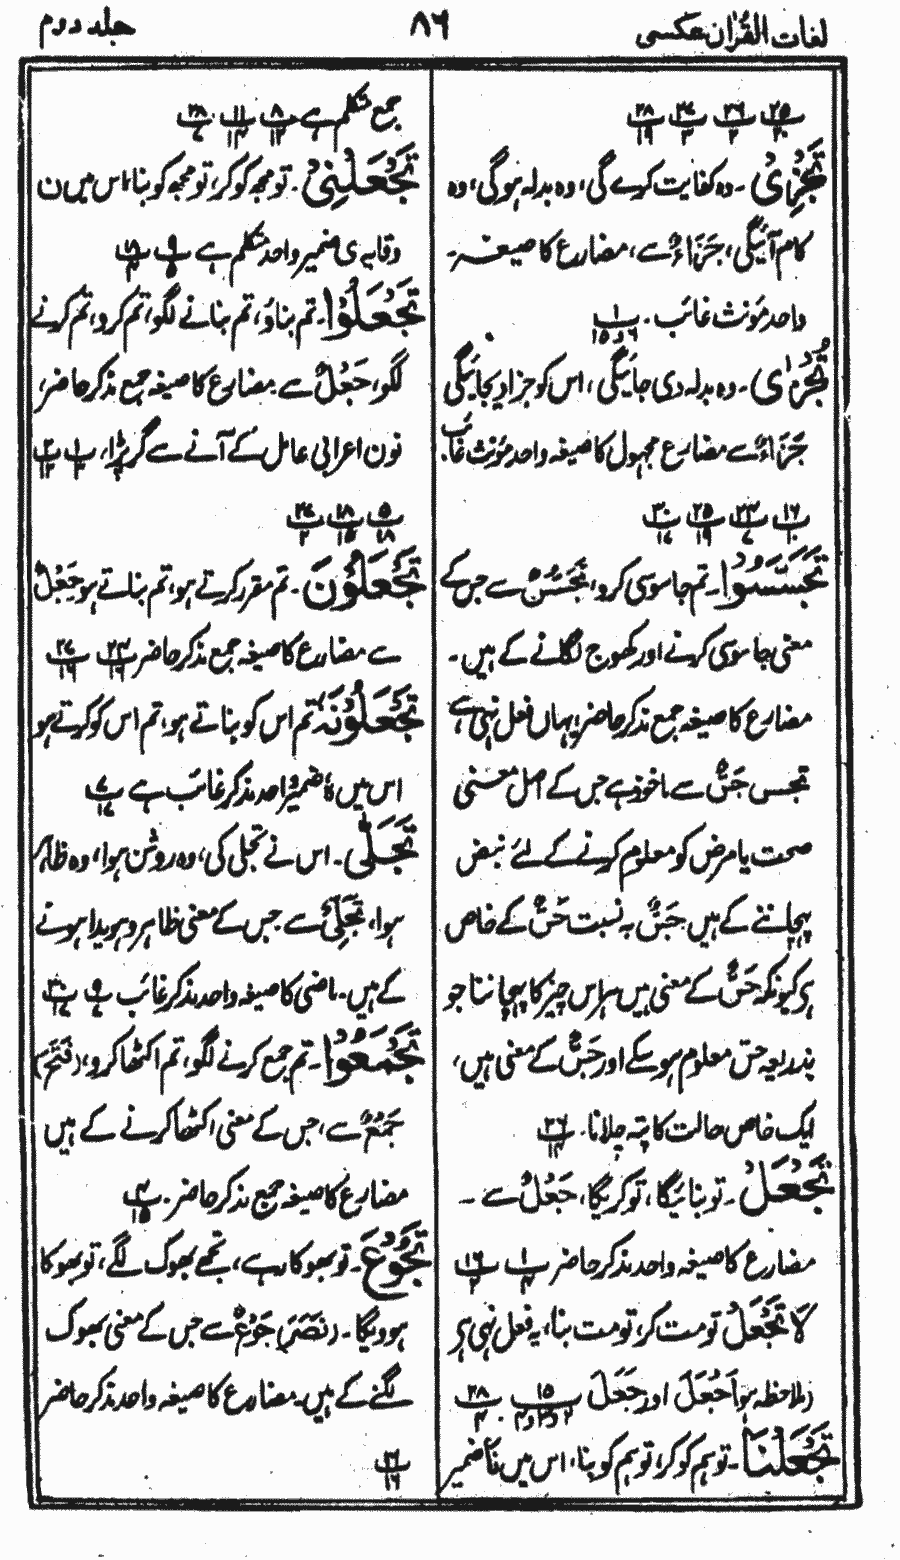 لغات القرآن عکسی
۸۶
جلد دوم
۲۵/۲۰ ۲۶/۲ ۲۷/۳ ۲۸/۱۹
تَجْزِیْ۔ وہ کفایت کرے گی، وہ بدلہ ہوگی، وہ
کام آئیگی، جَزَاءٌ سے، مضارع کا صیغہ۔
واحد مؤنث غائب۔ ۱/۶ و ۱۵
تُجْزٰی۔ وہ بدلہ دی جائیگی، اس کو جزا دیجائیگی
جَزَاءٌ سے مضارع مجہول کا صیغہ واحد مؤنث غائب۔
۱۶/۱۰ ۲۳/۷ ۲۵/۱۹ ۳۰/۱۷
تَجَسَّسُوْا۔ تم جاسوسی کرو، تَجَسُّسٌ سے جس کے
معنی جاسوسی کرنے اور کھوج لگانے کے ہیں۔
مضارع کا صیغہ جمع مذکر حاضر، یہاں فعل نہی ہے
تجسس جَسٌّ سے ماخوذ ہے جس کے اصل معنی
صحت یا مرض کو معلوم کرنے کے لئے نبض
پہچاننے کے ہیں جَسٌّ بہ نسبت حَسٌّ کے خاص
ہی کیونکہ حَسٌّ کے معنی ہیں ہر اس چیز کا پہچاننا جو
بذریعہ حس معلوم ہوسکے اور جَسٌّ کے معنی ہیں،
ایک خاص حالت کا پتہ چلانا۔ ۲۶/۱۴
تَجْعَلُ۔ تو بنائیگا، تو کریگا، جَعْلٌ سے۔
مضارع کا صیغہ واحد مذکر حاضر ۱/۴ ۱۶/۲
لَا تَجْعَلْ تو مت کر، تو مت بنا، یہ فعل نہی ہی
(ملاحظہ ہو اَجْعَلَ اور جَعَلَ ۱۵/۲ و ۳ و ۴ ۲۸/۴
تَجْعَلْنَا۔ تو ہم کو کر، تو ہم کو بنا، اس میں نَا ضمیر
جمع متکلم ہے ۸/۱۲ ۱۱/۱۴ ۲۸/۷
تَجْعَلْنِیْ۔ تو مجھ کو کر، تو مجھ کو بنا، اس میں ن
وقایہ ی ضمیر واحد متکلم ہے ۹/۵ ۱۸/۴
تَجْعَلُوْا۔ تم بناؤ، تم بنانے لگو، تم کرو، تم کرنے
لگو، جَعْلٌ سے۔ مضارع کا صیغہ جمع مذکر حاضر،
نون اعرابی عامل کے آنے سے گر پڑا، ۱/۳ ۲/۱۲
۵/۱۸ ۱۸/۱۵ ۲۷/۲
تَجْعَلُوْنَ۔ تم مقرر کرتے ہو، تم بناتے ہو، جَعْلٌ
سے مضارع کا صیغہ جمع مذکر حاضر ۲۴/۱۶ ۲۷/۱۶
تَجْعَلُوْنَہٗ، تم اس کو بناتے ہو، تم اس کو کرتے ہو
اس میں ہٗ ضمیر واحد مذکر غائب ہے ۷/۱۷
تَجَلّٰی۔ اس نے تجلی کی، وہ روشن ہوا، وہ ظاہر
ہوا، تَجَلِّیٌ سے جس کے معنی ظاہر و ہویدا ہونے
کے ہیں۔ ماضی کا صیغہ واحد مذکر غائب ۹/۷ ۳۰/۱۷
تَجْمَعُوْا۔ تم جمع کرنے لگو، تم اکٹھا کرو، (فَتَحَ)
جَمْعٌ سے، جس کے معنی اکٹھا کرنے کے ہیں
مضارع کا صیغہ جمع مذکر حاضر۔ ۴/۱۵
تَجُوْعَ۔ تو بھوکا رہے، تجھے بھوک لگے، تو بھوکا
ہوویگا۔ (نَصَرَ) جَوْعٌ سے جس کے معنی بھوک
لگنے کے ہیں۔ مضارع کا صیغہ واحد مذکر حاضر
۱۶/۱۶